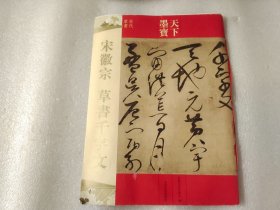 天下
墨寶
宋徽宗 草書千字文
千字文
天地元黄宇
宙洪荒日月
盈昃辰宿列